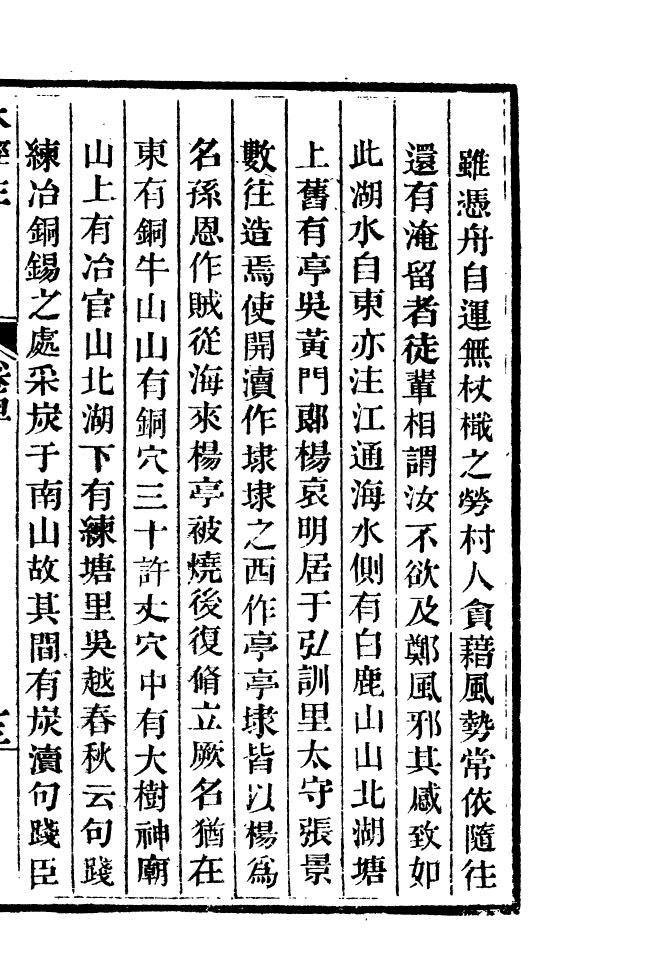 雖憑舟自運無杖檝之勞村人貪藉風勢常依隨往
還有淹留者徒輩相謂汝不欲及鄭風邪其感致如
此湖水自東亦注江通海水側有白鹿山山北湖塘
上舊有亭吳黃門郎楊哀明居于弘訓里太守張景
數往造焉使開瀆作埭埭之西作亭亭埭皆以楊爲
名孫恩作賊從海來楊亭被燒後復脩立厥名猶在
東有銅牛山山有銅穴三十許丈穴中有大樹神廟
山上有冶官山北湖下有練塘里吳越春秋云句踐
練冶銅錫之處采炭于南山故其間有炭瀆句踐臣